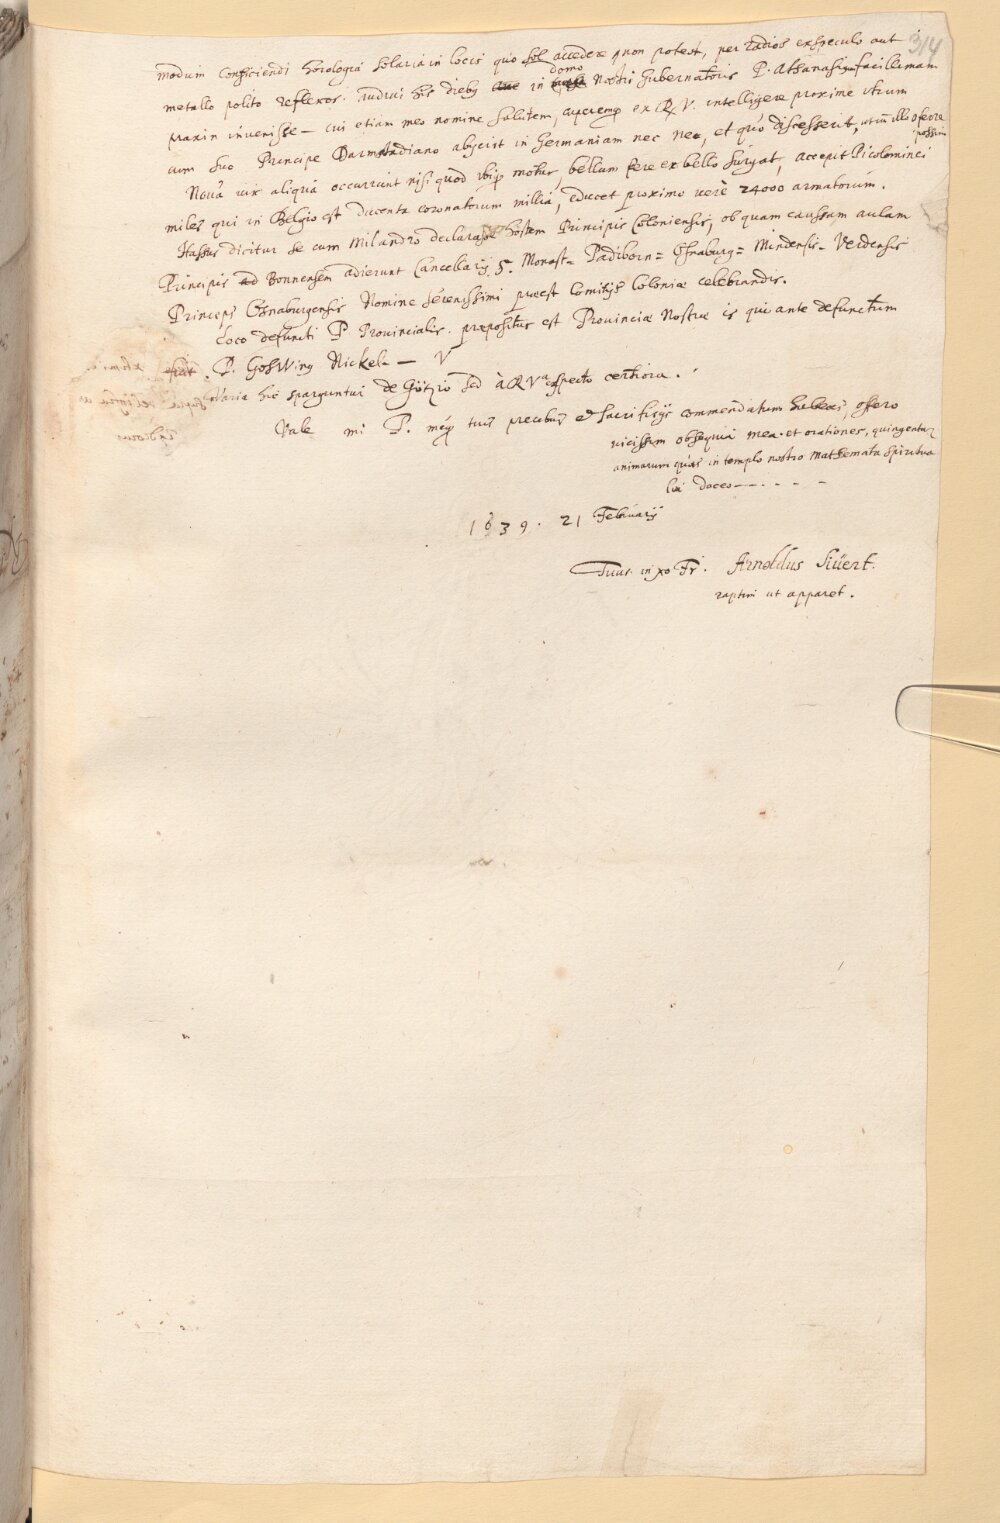 314
modum conficiendi horologia solaria in locis quo sol accedere non potest, per radios ex speculo aut
metallo polito reflexos. Audivi his diebus in domo Nostri Gubernatoris P. Athanasium facillimam
praxin invenisse — cui etiam meo nomine salutem, cuperemque ex R. V. intelligere proxime utrum
cum suo Principe Darmstadiano abierit in Germaniam nec ne, et quo discesserit, ut illo offerre
possim
Nova vix aliqua occurrunt nisi quod ubique motus, bellum fere ex bello surgat, accepit Picolominei
miles qui in Belgio est ducenta coronatorum millia, educet proximo vere 24000 armatorum.
Hassus dicitur se cum Milandro declarasse hostem Principis Coloniensis, ob quam caussam aulam
Principis ad Bonnensem adierunt Cancellarii 5. Monast= Padiborn= Osnaburg= Mindensis= Verdensis
Princeps Osnaburgensis Nomine serenissimi praeest Comitiis Coloniae celebrandis.
Loco defuncti P Provincialis praepositus est Provinciae Nostrae is qui ante defunctum
P. Goswing Nickel — V
Varia hic sparguntur de Götzio sed à R Va exspecto certiora.
Vale mi P. meque tuis precibus et sacrificiis commendatum habeas, offero
vicissim obsequia mea et orationes, quingentarum
animarum quas in templo nostro mathemata spiritua
lia doceo — — . - - -
1639. 21 Februarii
Tuus in xo Fr. Arnoldus Siüert.
raptim ut apparet.